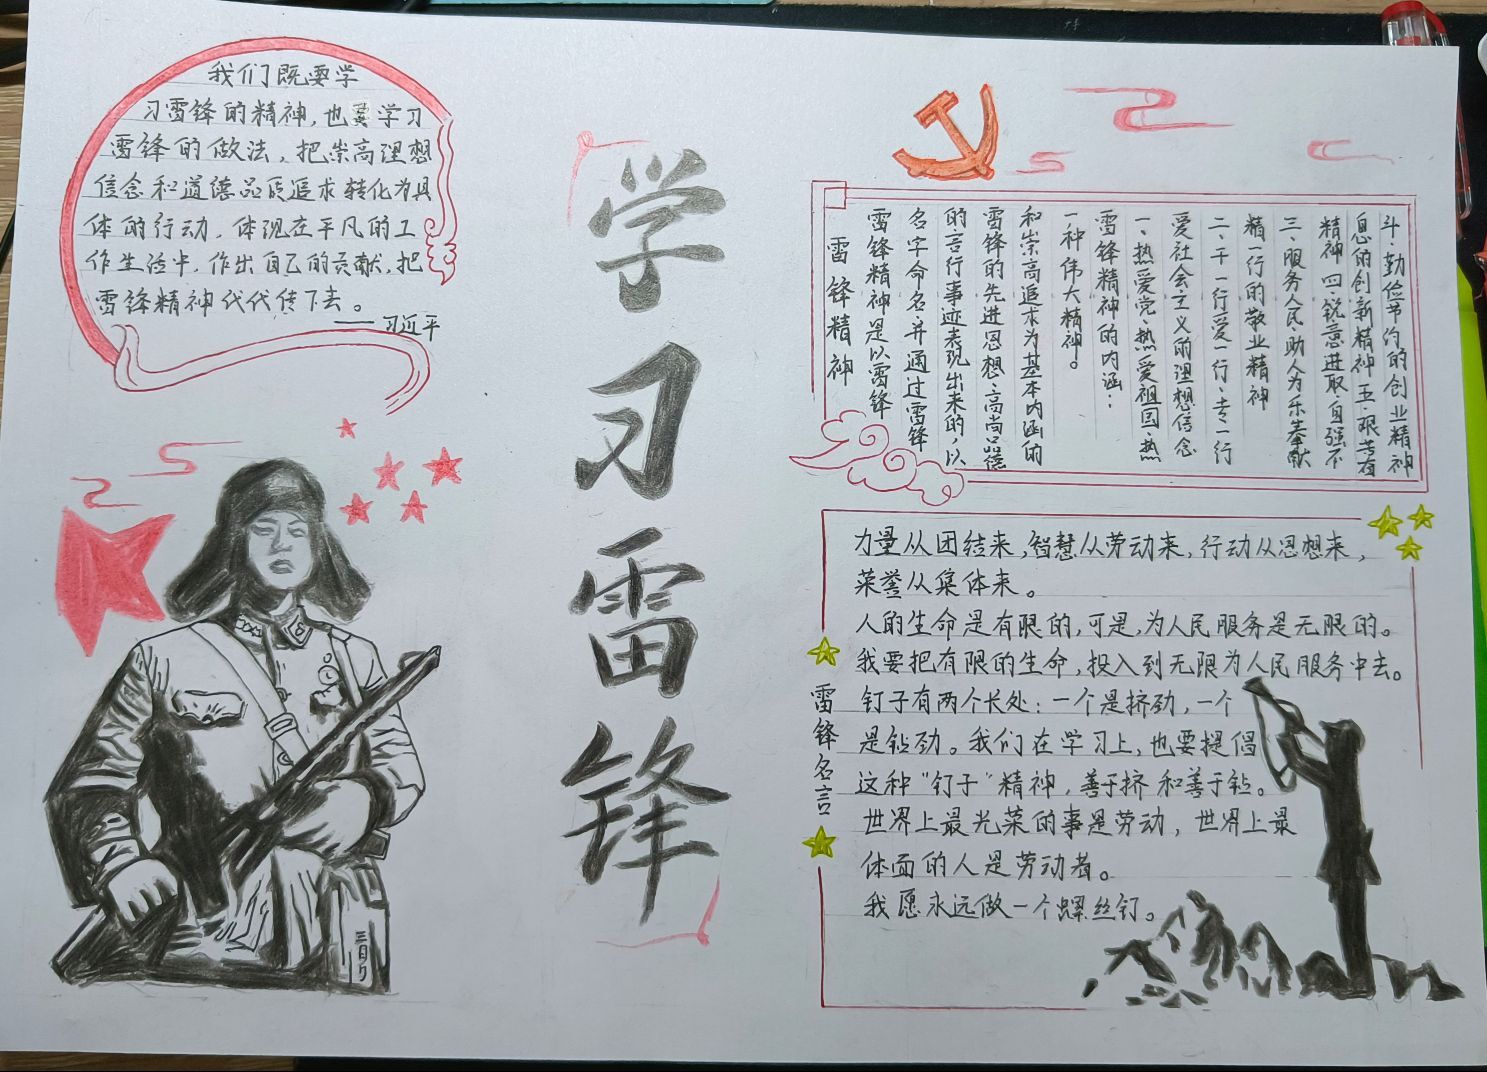 我们既要学
习雷锋的精神，也要学习
雷锋的做法，把崇高理想
信念和道德品质追求转化为具
体的行动，体现在平凡的工
作生活中，作出自己的贡献，把
雷锋精神代代传下去。
——习近平
学习雷锋
雷锋精神
雷锋精神是以雷锋
名字命名，并通过雷锋
的言行事迹表现出来的，以
雷锋的先进思想、高尚品德
和崇高追求为基本内涵的
一种伟大精神。
雷锋精神的内涵：
一、热爱党、热爱祖国、热
爱社会主义的理想信念
二、干一行爱一行、专一行
精一行的敬业精神
三、服务人民、助人为乐奉献
精神 四 锐意进取、自强不
息的创新精神 五、艰苦奋
斗、勤俭节约的创业精神
力量从团结来，智慧从劳动来，行动从思想来，
荣誉从集体来。
人的生命是有限的，可是，为人民服务是无限的。
我要把有限的生命，投入到无限为人民服务中去。
钉子有两个长处：一个是挤劲，一个
是钻劲。我们在学习上，也要提倡
这种“钉子”精神，善于挤和善于钻。
世界上最光荣的事是劳动，世界上最
体面的人是劳动者。
我愿永远做一个螺丝钉。
雷锋名言